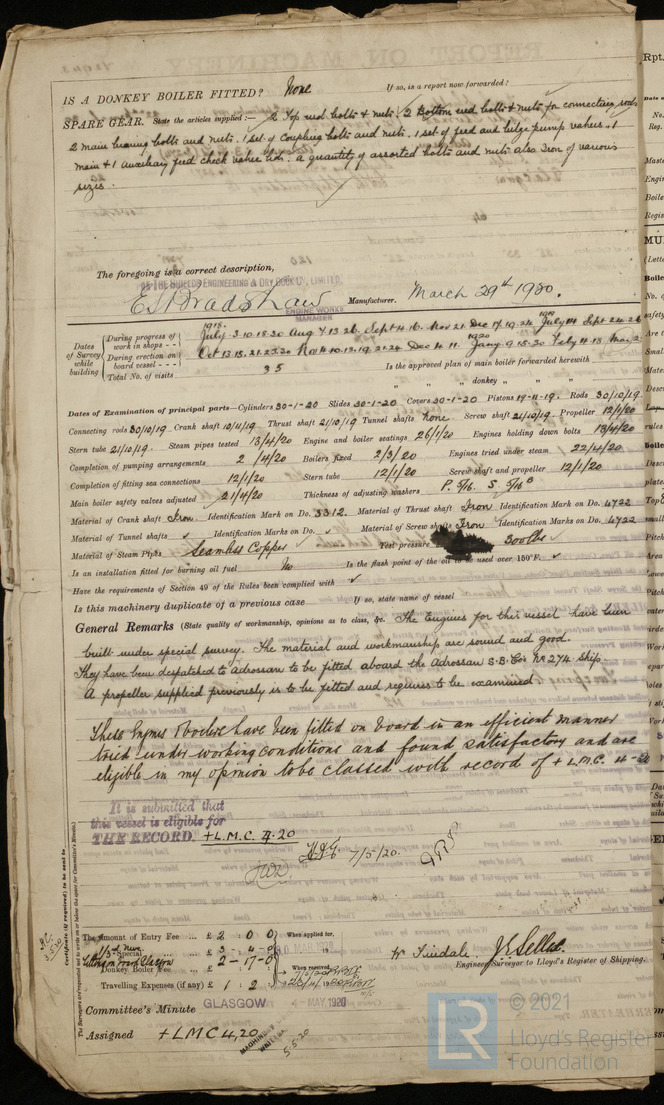 IS A DONKEY BOILER FITTED? None If so, is a report now forwarded?
SPARE GEAR. State the articles supplied:— 2 Top end bolts & nuts. 2 Bottom end bolts & nuts for connecting rods
2 main bearing bolts and nuts. 1 set of coupling bolts and nuts. 1 set of feed and bilge pump valves. 1
main & 1 auxiliary feed check valve lids. a quantity of assorted bolts and nuts also Iron of various
sizes.
The foregoing is a correct description,
ENGINEERING & DRY DOCK CO. LIMITED,
E S Bradshaw Manufacturer. March 29th 1920.
ENGINE WORKS
MANAGER
Dates of Survey while building
During progress of work in shops - - 1918. July 3.10.18.30 Aug 7.13.26. Sept 4.16. Nov 21. Dec 17.19.24 1919 July 14 Sept 24.26
During erection on board vessel - - - Oct 13.15.21.23.30 1920
Total No. of visits 35 Is the approved plan of main boiler forwarded herewith
" " " donkey " " "
Dates of Examination of principal parts—Cylinders 30-1-20 Slides 30-1-20 Covers 30-1-20 Pistons 19-11-19. Rods 30/10/19
Connecting rods 30/10/19 Crank shaft 10/4/19 Thrust shaft 21/10/19 Tunnel shafts none Screw shaft 21/10/19. Propeller 12/1/20
Stern tube 21/10/19. Steam pipes tested 13/4/20 Engine and boiler seatings 26/1/20 Engines holding down bolts 13/4/20
Completion of pumping arrangements 2 /4/20 Boilers fixed 2/3/20 Engines tried under steam 22/4/20
Completion of fitting sea connections 12/1/20 Stern tube 12/1/20 Screw shaft and propeller 12/1/20
Main boiler safety valves adjusted 21/4/20 Thickness of adjusting washers P. 5/16. S. 5/16
Material of Crank shaft Iron Identification Mark on Do. 3312 Material of Thrust shaft Iron Identification Mark on Do. 4722
Material of Tunnel shafts ✓ Identification Marks on Do. ✓ Material of Screw shafts Iron Identification Marks on Do. 4722
Material of Steam Pipes Seamless Copper ✓ Test pressure 300 lbs ✓
Is an installation fitted for burning oil fuel No Is the flash point of the oil to be used over 150°F. ✓
Have the requirements of Section 49 of the Rules been complied with ✓
Is this machinery duplicate of a previous case If so, state name of vessel
General Remarks (State quality of workmanship, opinions as to class, &c. The Engines for this vessel have been
built under special survey. The material and workmanship are sound and good.
They have been despatched to Ardrossan to be fitted aboard the Ardrossan S.B. Cos No 274 Ship.
A propeller supplied previously is to be fitted and requires to be examined
These Engines & boilers have been fitted on board in an efficient manner
tried under working conditions and found satisfactory and are
eligible in my opinion to be classed with record of + L.M.C. 4-20
It is submitted that
this vessel is eligible for
THE RECORD. + L.M.C. 4.20
7/5/20.
Certificate (if required) to be sent to
The Amount of Entry Fee ... £ 2 : 0 : 0 When applied for,
Special ... £ 3 - 4 - 0
Donkey Boiler Fee ... £ 2 - 17 - 0 When received,
Travelling Expenses (if any) £ 1 : 2 :
W Tindale. J. G. Sellex.
Engineer Surveyor to Lloyd's Register of Shipping.
Committee's Minute GLASGOW 4 - MAY. 1920
Assigned + L M C 4,20
5.5.20
© 2021
LR Lloyd's Register
Foundation